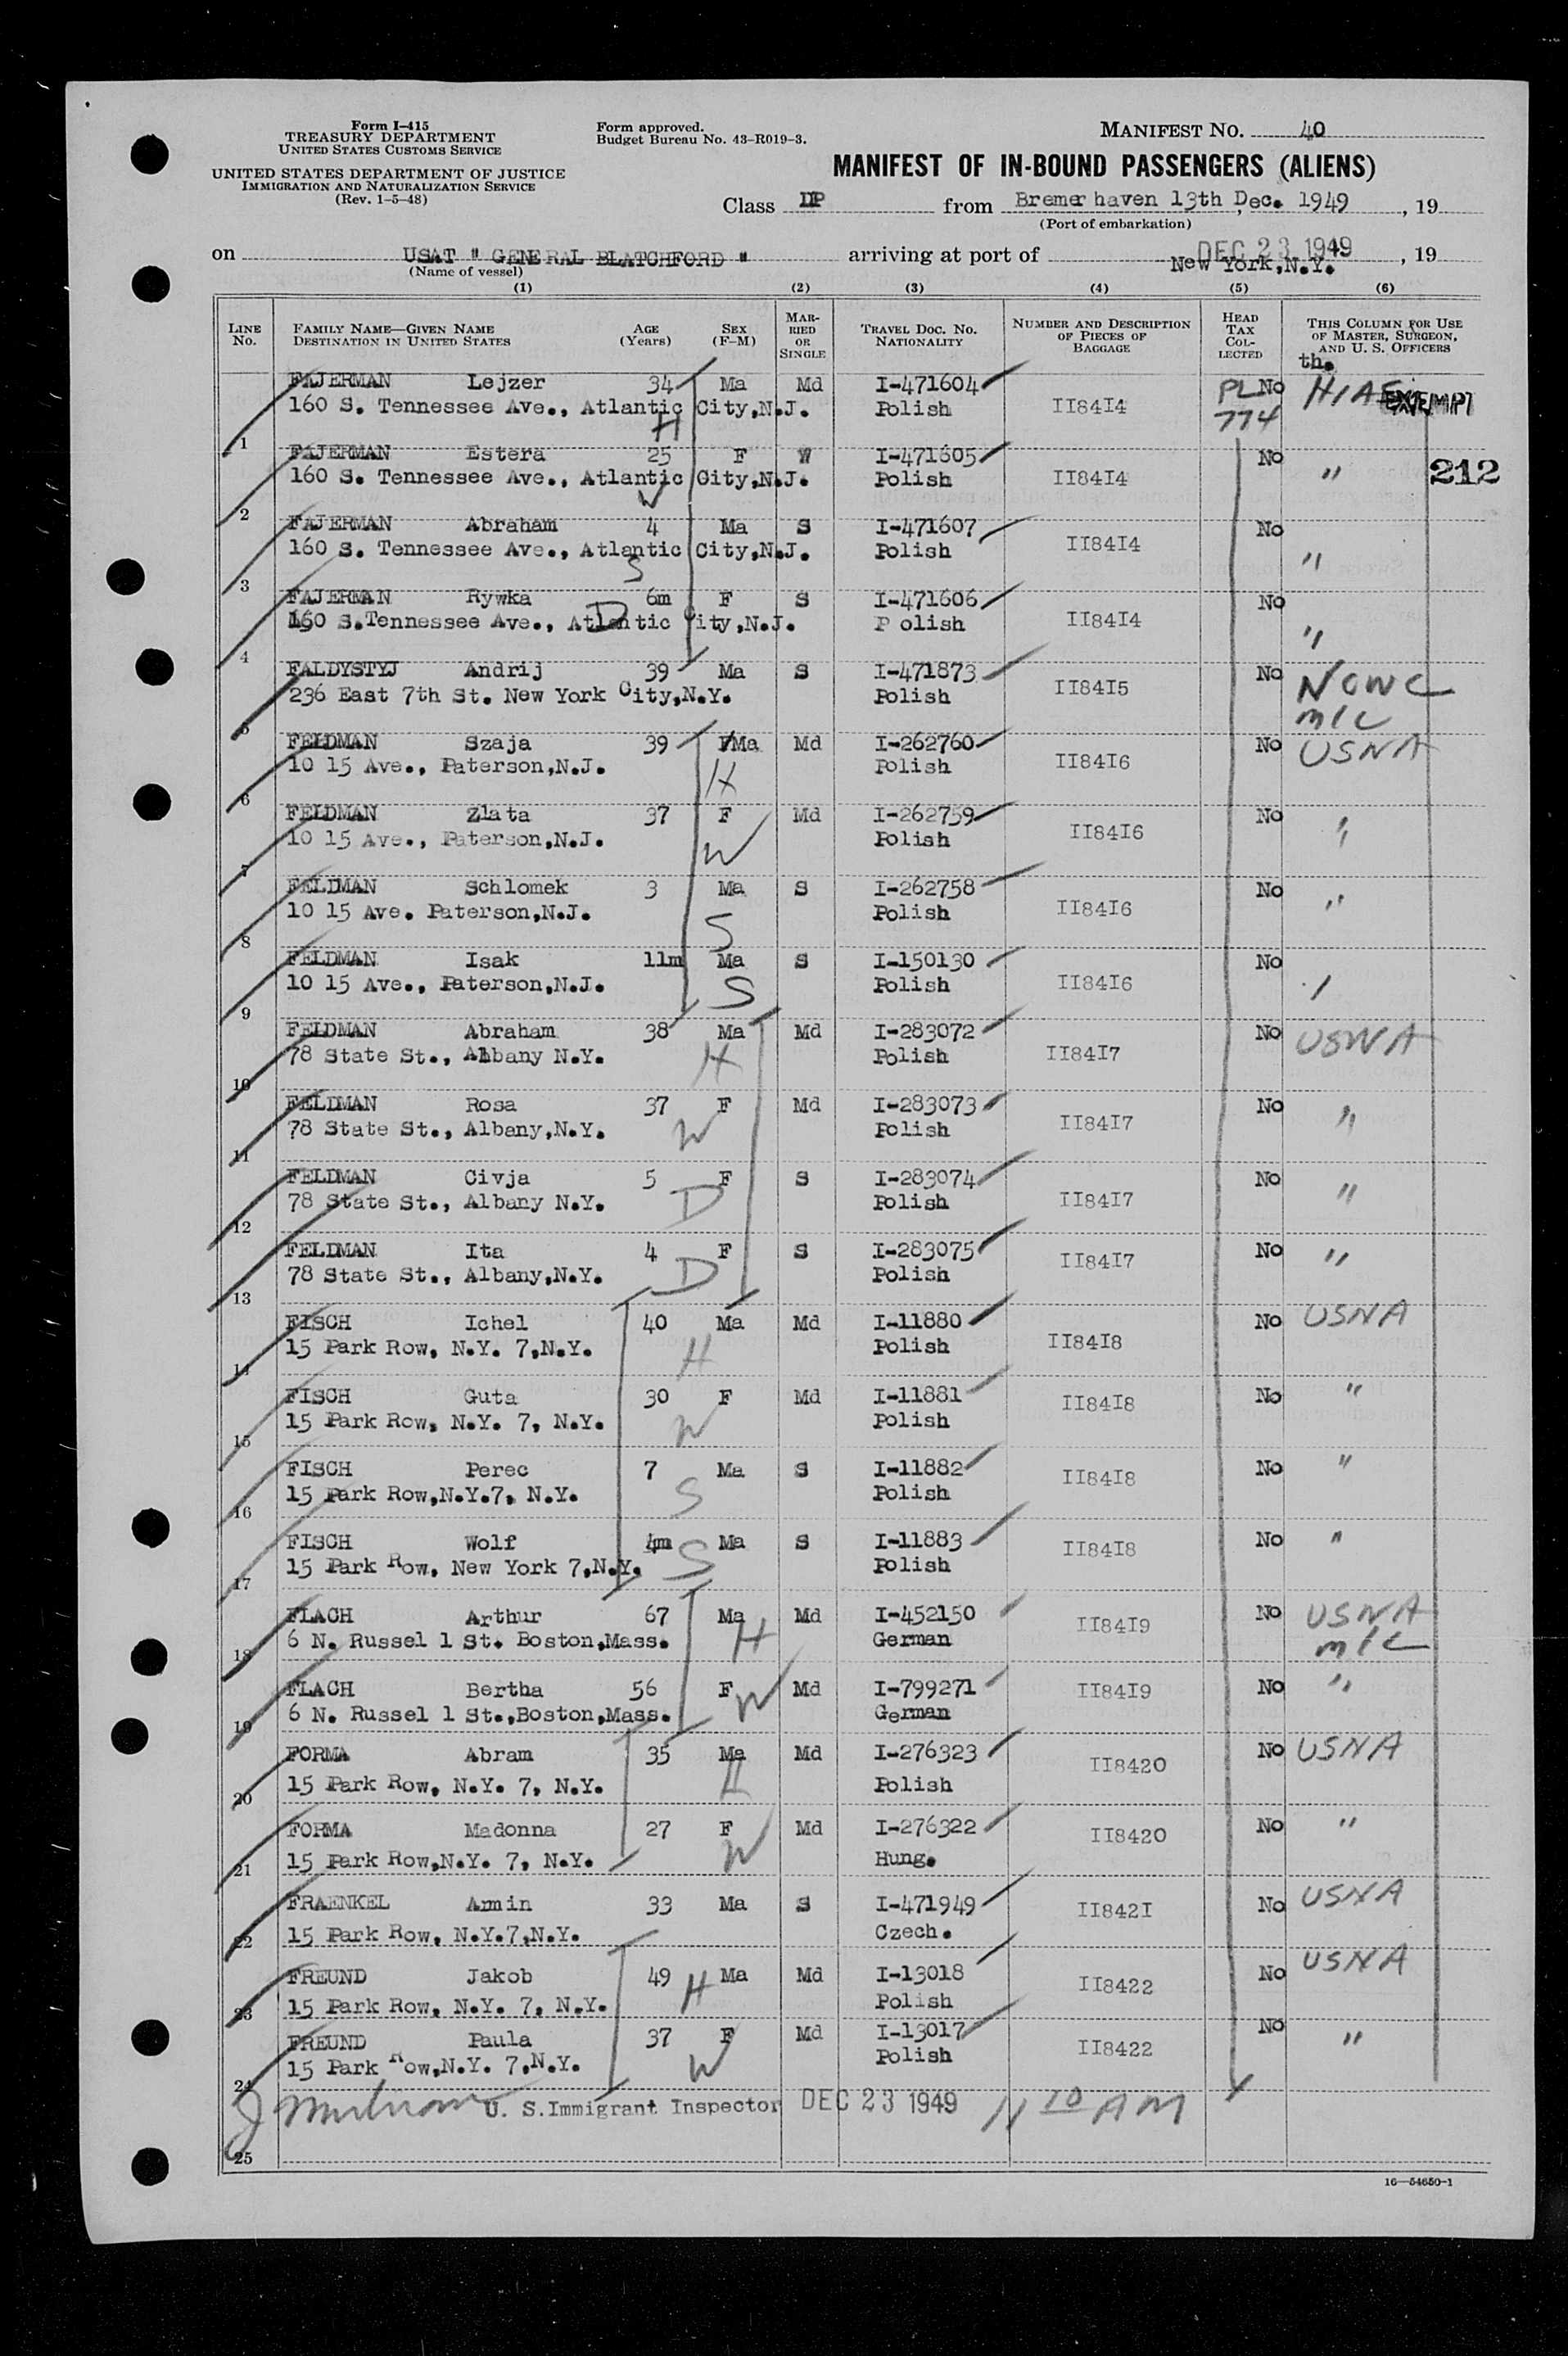 Form I-415
TREASURY DEPARTMENT
UNITED STATES CUSTOMS SERVICE
UNITED STATES DEPARTMENT OF JUSTICE
IMMIGRATION AND NATURALIZATION SERVICE
(Rev. 1-5-48)
Form approved.
Budget Bureau No. 43-R019-3.
MANIFEST NO. 40
MANIFEST OF IN-BOUND PASSENGERS (ALIENS)
Class DP from Bremerhaven 13th Dec. 1949, 19
(Port of embarkation)
on USAT " GENERAL BLATCHFORD " arriving at port of New York,N.Y. DEC 23 1949, 19
(Name of vessel)
(1) (2) (3) (4) (5) (6)
LINE NO. FAMILY NAME—GIVEN NAME DESTINATION IN UNITED STATES AGE (Years) SEX (F-M) MARRIED OR SINGLE TRAVEL DOC. NO. NATIONALITY NUMBER AND DESCRIPTION OF PIECES OF BAGGAGE HEAD TAX COLLECTED THIS COLUMN FOR USE OF MASTER, SURGEON, AND U. S. OFFICERS
th.
FAJERMAN Lejzer 34 Ma Md I-471604 PL No HIAS EXEMPT
160 S. Tennessee Ave., Atlantic City,N.J. Polish II84I4 774
1 H
FAJERMAN Estera 25 F W I-471605 No "
160 S. Tennessee Ave., Atlantic City,N.J. Polish II84I4 212
2 W
FAJERMAN Abraham 4 Ma S I-471607 No
160 S. Tennessee Ave., Atlantic City,N.J. Polish II84I4 "
3 S
FAJERMAN Rywka 6m F S I-471606 No
160 S.Tennessee Ave., Atlantic City,N.J. Polish II84I4 "
4 D
FALDYSTYJ Andrij 39 Ma S I-471873 No NCWC
236 East 7th St. New York City,N.Y. Polish II84I5 m/c
5
FELDMAN Szaja 39 FMa Md I-262760 No USNA
10 15 Ave., Paterson,N.J. Polish II84I6
6 H
FELDMAN Zlata 37 F Md I-262759 No "
10 15 Ave., Paterson,N.J. Polish II84I6
7 W
FELDMAN Schlomek 3 Ma S I-262758 No "
10 15 Ave. Paterson,N.J. Polish II84I6
8 S
FELDMAN Isak 11m Ma S I-150130 No
10 15 Ave., Paterson,N.J. Polish II84I6
9 S
FELDMAN Abraham 38 Ma Md I-283072 No USNA
78 State St., Albany N.Y. Polish II84I7
10 H
FELDMAN Rosa 37 F Md I-283073 No "
78 State St., Albany,N.Y. Polish II84I7
11 W
FELDMAN Civja 5 F S I-283074 No "
78 State St., Albany N.Y. Polish II84I7
12 D
FELDMAN Ita 4 F S I-283075 No "
78 State St., Albany,N.Y. Polish II84I7
13 D
FISCH Ichel 40 Ma Md I-11880 No USNA
15 Park Row, N.Y. 7,N.Y. Polish II84I8
14 H
FISCH Guta 30 F Md I-11881 No "
15 Park Row, N.Y. 7, N.Y. Polish II84I8
15 W
FISCH Perec 7 Ma S I-11882 No "
15 Park Row,N.Y.7, N.Y. Polish II84I8
16 S
FISCH Wolf 4m Ma S I-11883 No "
15 Park Row, New York 7,N.Y. Polish II84I8
17 S
FLACH Arthur 67 Ma Md I-452150 No USNA
6 N. Russel 1 St. Boston,Mass. German II84I9 m/c
18 H
FLACH Bertha 56 F Md I-799271 No "
6 N. Russel 1 St.,Boston,Mass. German II84I9
19 W
FORMA Abram 35 Ma Md I-276323 No USNA
15 Park Row, N.Y. 7, N.Y. Polish II8420
20 H
FORMA Madonna 27 F Md I-276322 No "
15 Park Row,N.Y. 7, N.Y. Hung. II8420
21 W
FRAENKEL Armin 33 Ma S I-471949 No USNA
15 Park Row, N.Y.7,N.Y. Czech. II842I
22
FREUND Jakob 49 H Ma Md I-13018 No USNA
15 Park Row, N.Y. 7, N.Y. Polish II8422
23
FREUND Paula 37 F Md I-13017 No "
15 Park Row,N.Y. 7,N.Y. Polish II8422
24 W
U. S.Immigrant Inspector DEC 23 1949 11 10 AM
25
16—54650-1